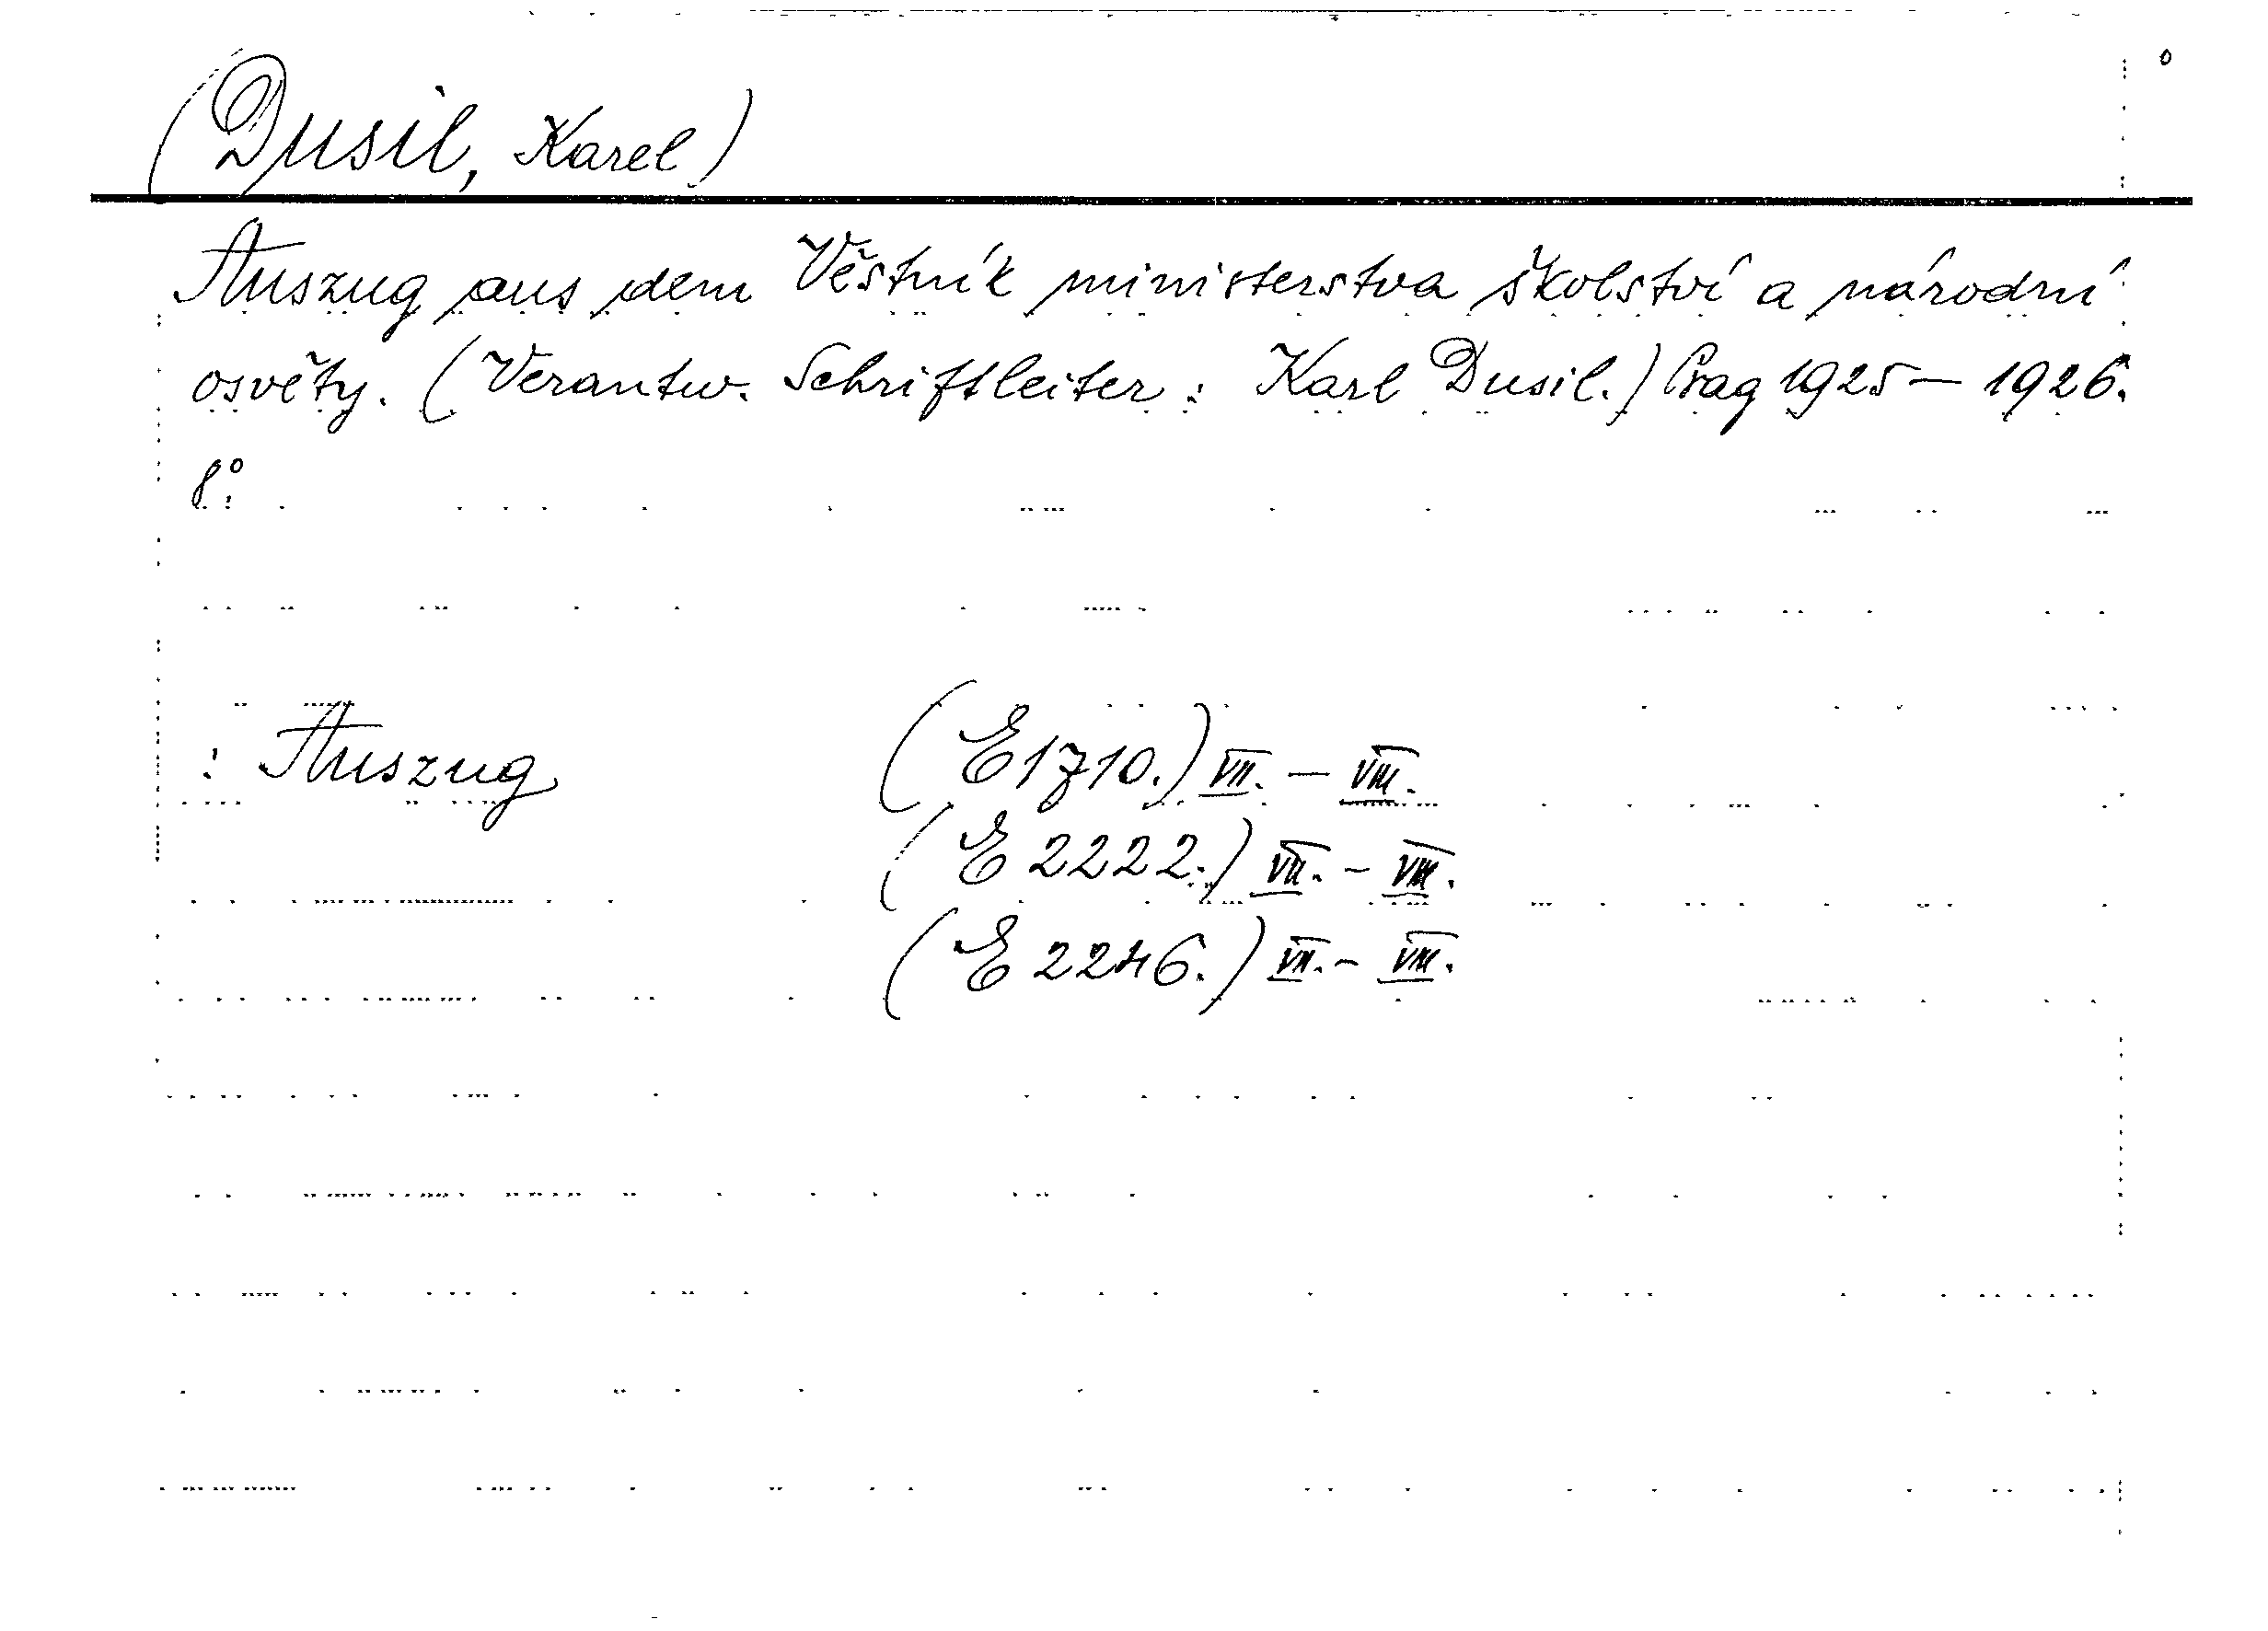 (Dusil, Karel)
Auszug aus dem Věstník ministerstva školství a národní
osvěty. (Verantw. Schriftleiter: Karl Dusil.) Prag 1925—1926.
8°.
: Auszug (E 1710.) VII. — VIII.
(E 2222.) VII. - VIII.
(E 2246.) VII. - VIII.